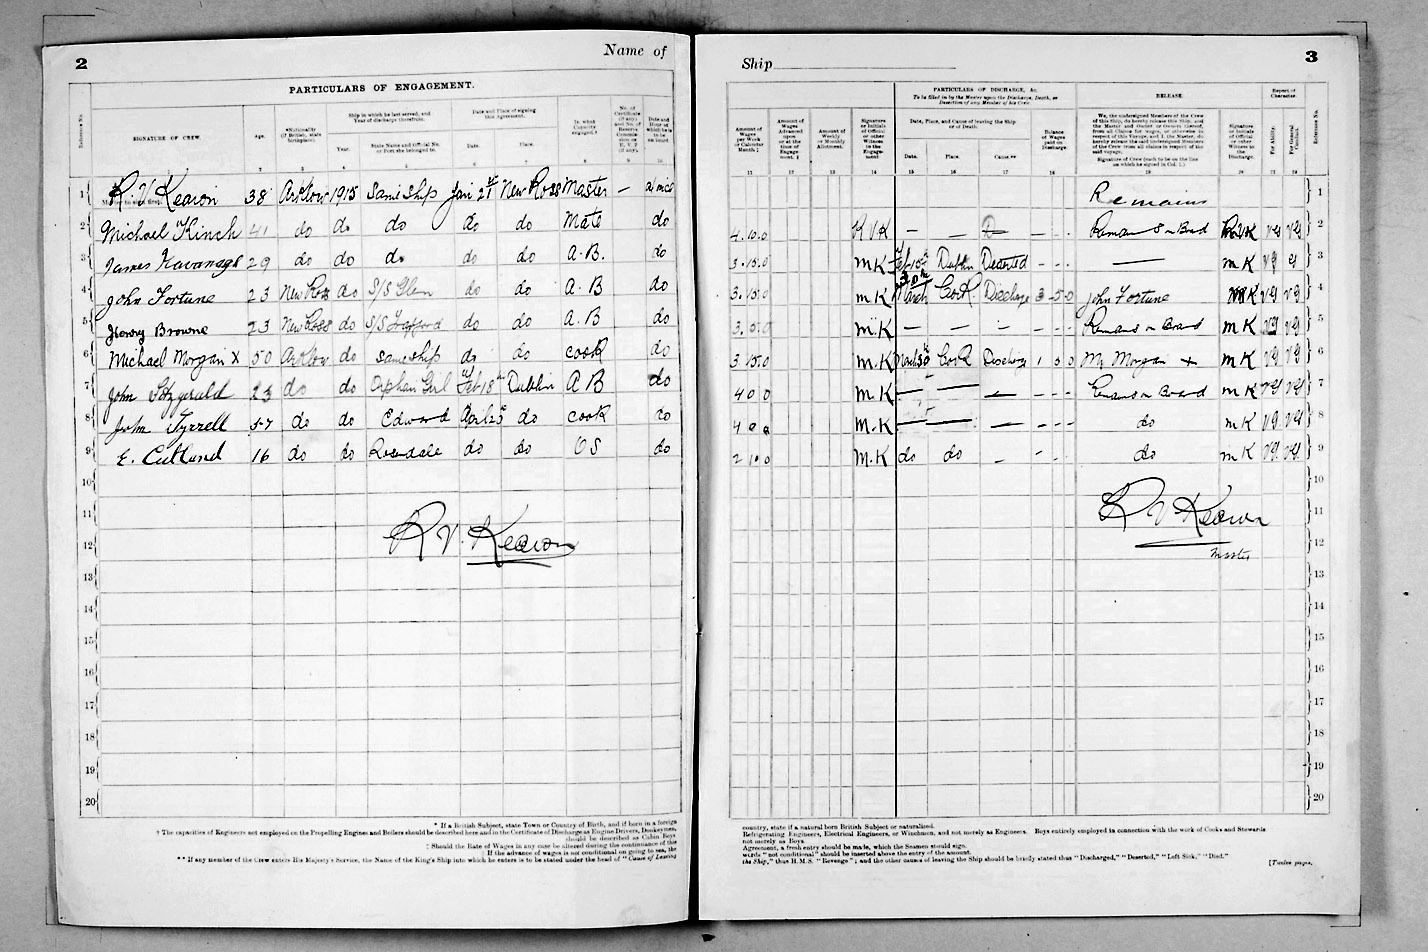 2
Name of
PARTICULARS OF ENGAGEMENT.
Reference No.
SIGNATURE OF CREW.
Age.
*Nationality (If British, state birthplace).
Ship in which he last served, and Year of discharge therefrom.
Year.
State Name and Official No. or Port she belonged to.
Date and Place of signing this Agreement.
Date.
Place.
In what Capacity engaged.†
No. of Certificate (if any) and No. of Reserve Commission or R. V. 2 (if any).
Date and Hour at which he is to be on board.
1 R V Kearon 38 Arklow 1915 Same ship Jan 21st New Ross Master – at once
2 Michael Kinch 41 do do do do do Mate do
3 James Kavanagh 29 do do do do do A.B. do
4 John Fortune 23 New Ross do S/S Glen do do A.B do
5 Henry Browne 23 New Ross do S/S Trafford do do A.B do
6 Michael Morgan X 50 Arklow do same ship do do cook do
7 John Fitzgerald 23 do do Orphan Girl Feb 18th Dublin AB do
8 John Tyrrell 57 do do Edward April 25 do cook do
9 E. Cutland 16 do do Rosedale do do OS do
10
11
12 R V. Kearon
13
14
15
16
17
18
19
20
* If a British Subject, state Town or Country of Birth, and if born in a foreign
† The capacities of Engineers not employed on the Propelling Engines and Boilers should be described here and in the Certificate of Discharge as Engine Drivers, Donkeymen,
should be described as Cabin Boys
‡ Should the Rate of Wages in any case be altered during the continuance of this
If the advance of wages is not conditional on going to sea, the
** If any member of the Crew enters His Majesty's Service, the Name of the King's Ship into which he enters is to be stated under the head of "Cause of Leaving
Ship
3
PARTICULARS OF DISCHARGE, &c.
To be filled in by the Master upon the Discharge, Death, or Desertion of any Member of his Crew.
RELEASE
Report of Character.
Amount of Wages per Week or Calendar Month ‡
Amount of Wages Advanced upon or at the time of Engagement. ‡
Amount of Weekly or Monthly Allotment.
Signature or Initials of Official or other Witness to the Engagement
Date, Place, and Cause of leaving the Ship or of Death.
Date.
Place.
Cause.**
Balance of Wages paid on Discharge.
We, the undersigned Members of the Crew of this Ship, do hereby release this Ship, and the Master and Owner or Owners thereof, from all Claims for wages, or otherwise in respect of this Voyage, and I, the Master, do hereby release the said undersigned Members of the Crew from all claims in respect of the said voyage.
Signature of Crew (each to be on the line on which he signed in Col. 1.)
Signature or Initials of Official or other Witness to the Discharge.
For Ability.
For General Conduct.
Reference No.
11 12 13 14 15 16 17 18 19 20 21 22
Remains 1
4.10.0 R V K – – – Remains on Board RVK VG VG 2
3.15.0 m K Feb 10th Dublin Deserted - - - — m K VG G 3
3.15.0 m K 30th March Cork Discharge 3 - 5 0 John Fortune m K VG VG 4
3.5.0 m.K – – – - - - Remains on Board m K VG VG 5
3 15.0 m.K March 30th Cork Discharge 1 5 0 M Morgan x m K VG VG 6
4 0 0 m.K – – – - - - Remains on Board m K VG VG 7
4 0 0 M.K – – – - - - do m K VG VG 8
2 10 0 M.K do do – - - do m K VG VG 9
10
R V Kearon 11
Master 12
13
14
15
16
17
18
19
20
country, state if a natural born British Subject or naturalized.
Refrigerating Engineers, Electrical Engineers, or Winchmen, and not merely as Engineers. Boys entirely employed in connection with the work of Cooks and Stewards
not merely as Boys.
Agreement, a fresh entry should be made, which the Seamen should sign.
words "not conditional" should be inserted above the entry of the amount.
the Ship," thus H.M.S. "Revenge"; and the other causes of leaving the Ship should be briefly stated thus "Discharged," "Deserted," "Left Sick," "Died."
[Twelve pages.